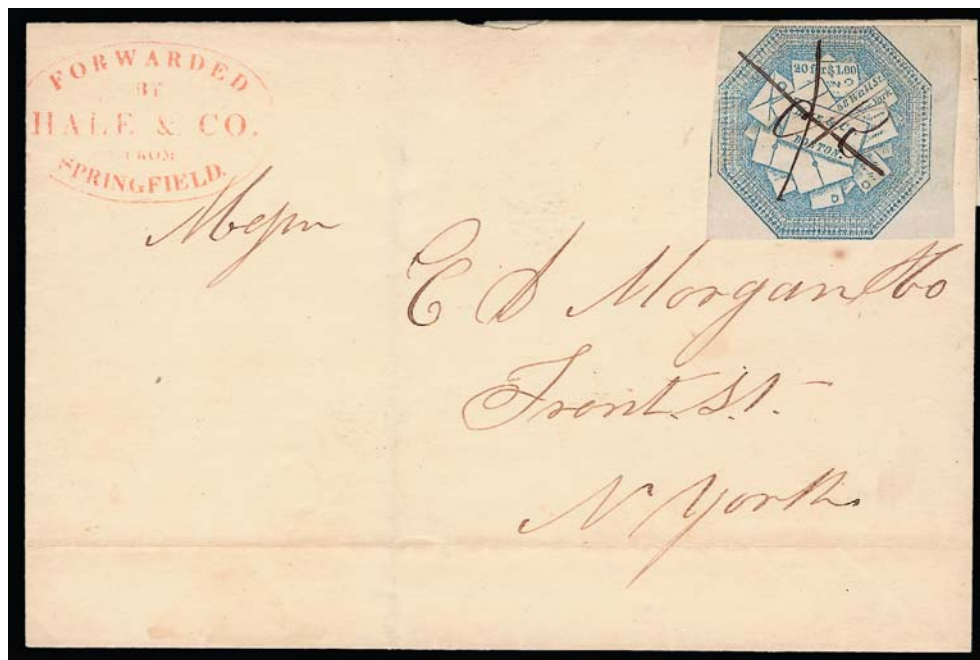 FORWARDED
BY
HALE & CO.
FROM
SPRINGFIELD.
20 for $1.00
58 Wall St.
York
BOSTON.
Messrs
E D Morgan & Co
Front. St.
N York